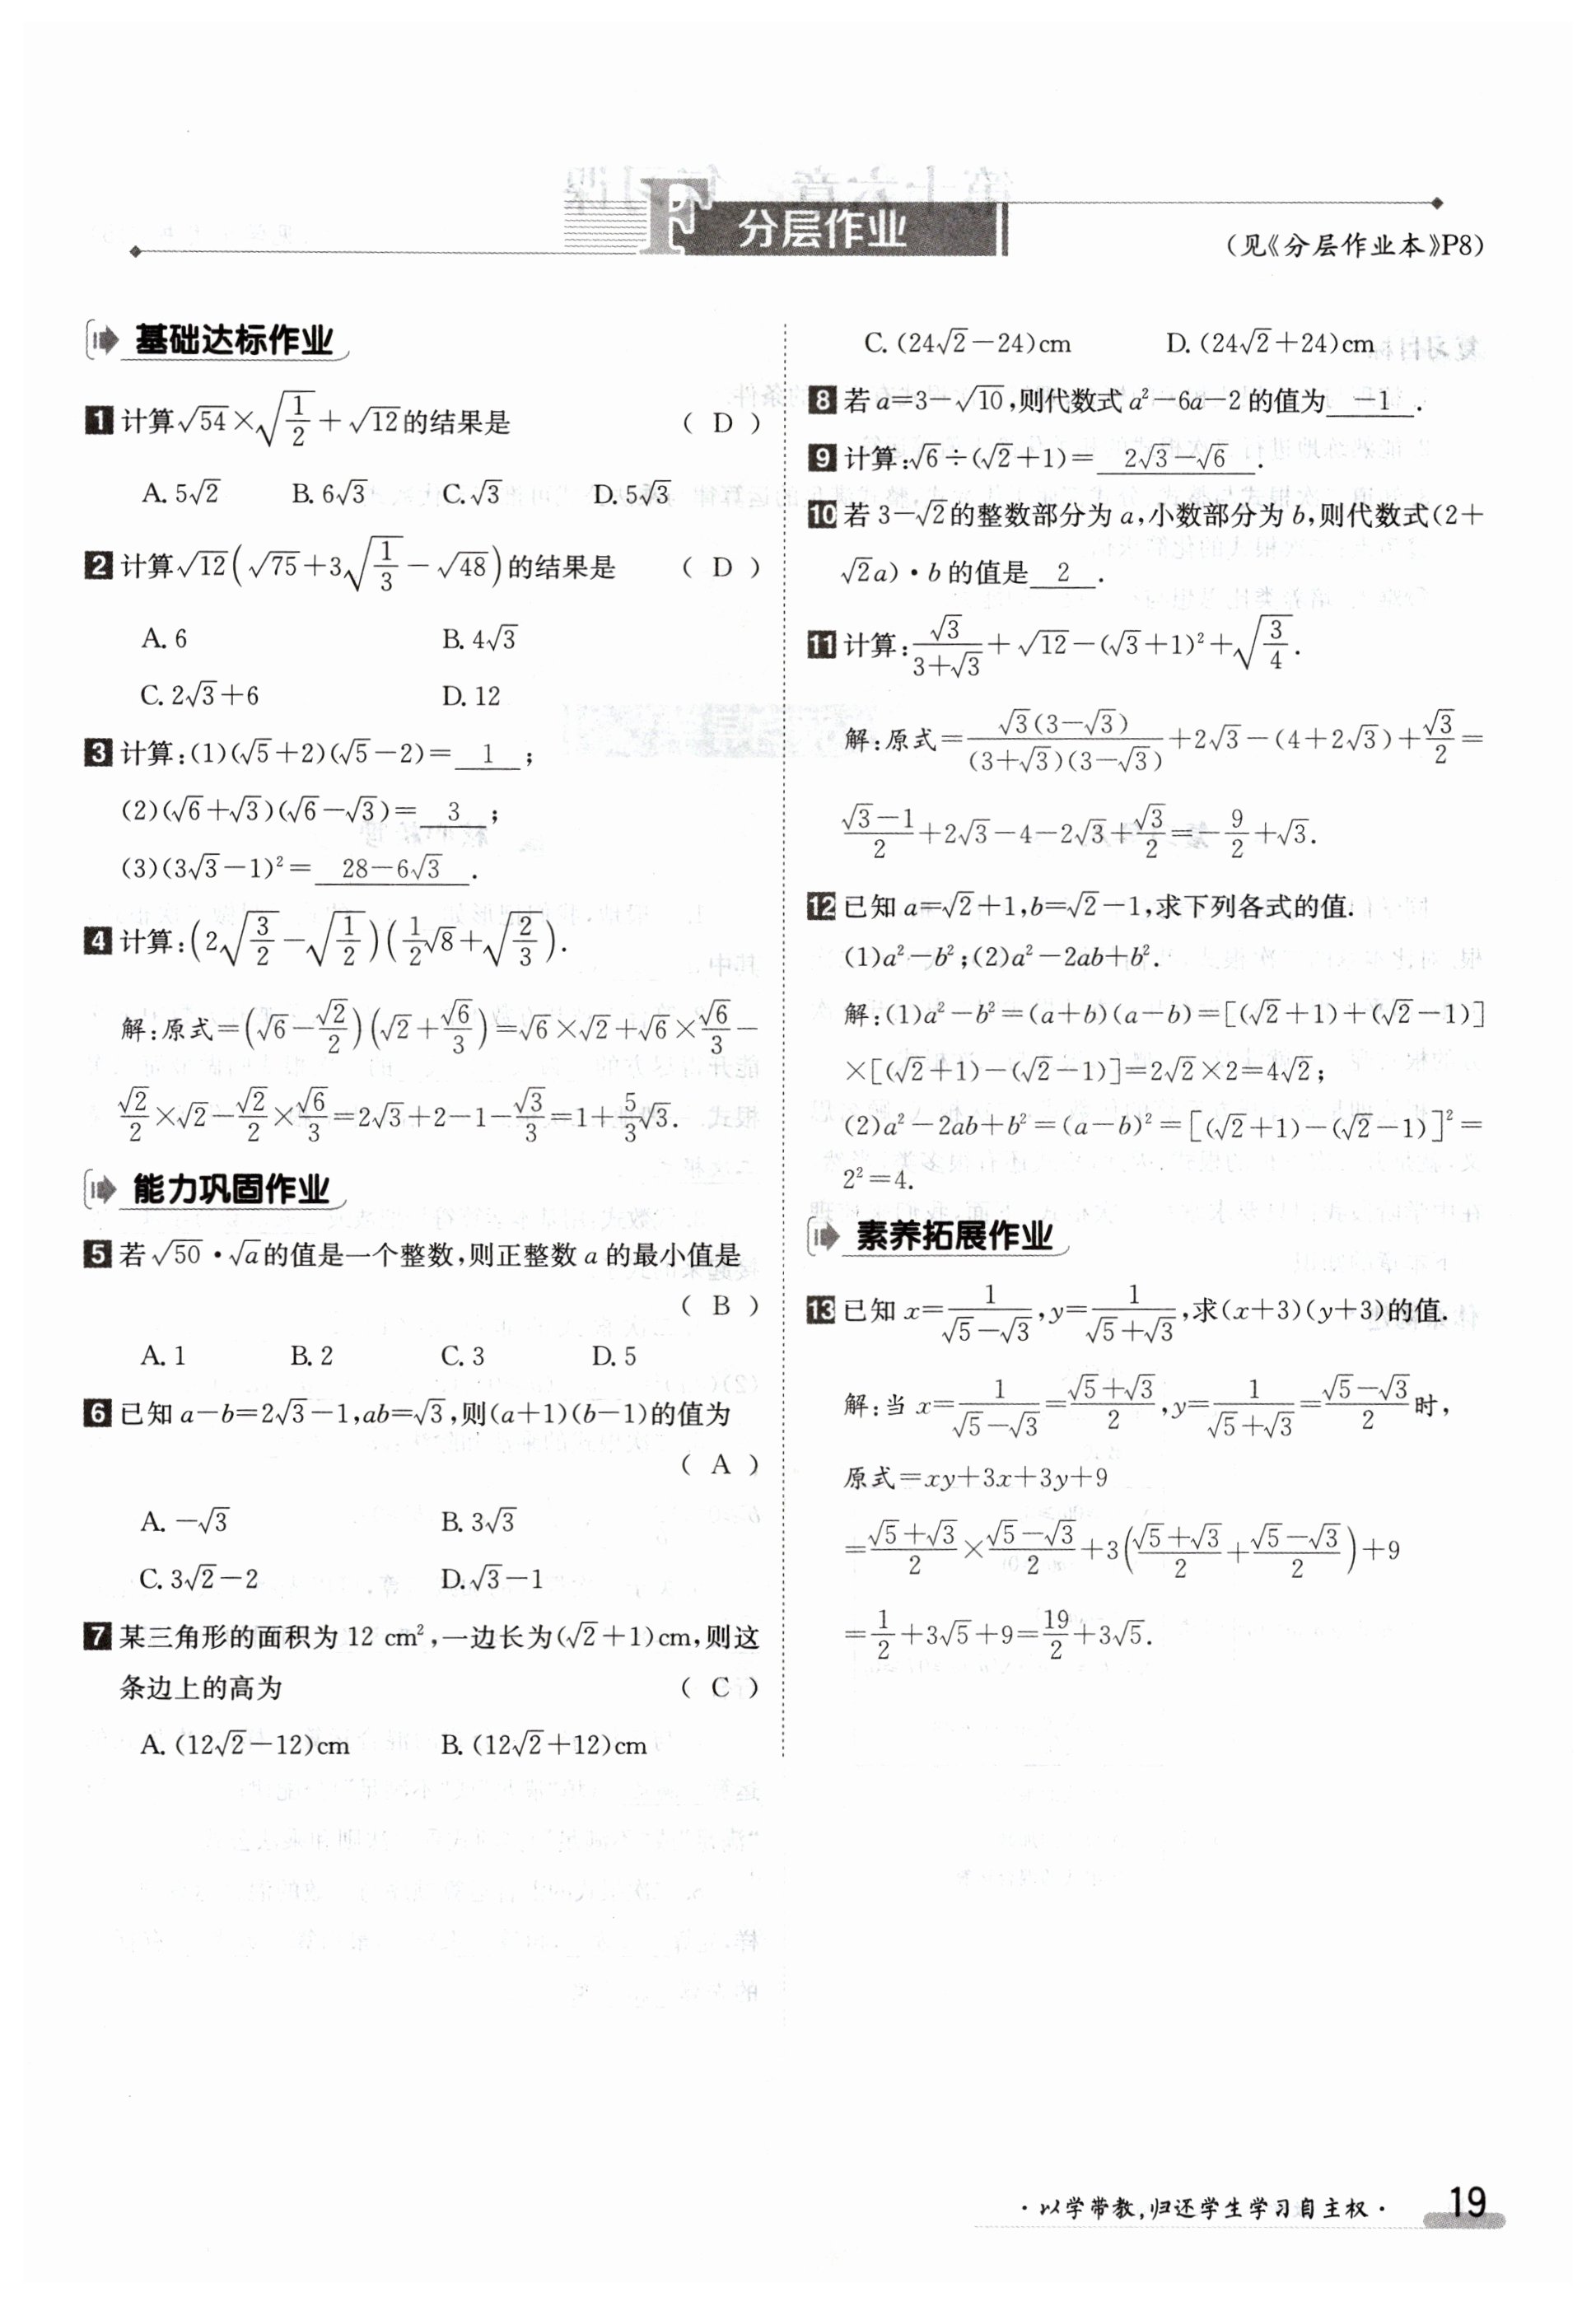 F 分层作业
(见《分层作业本》P8)
基础达标作业
1 计算√54×√(1/2)+√12的结果是 ( D )
A. 5√2 B. 6√3 C. √3 D. 5√3
2 计算√12(√75+3√(1/3)-√48)的结果是 ( D )
A. 6 B. 4√3
C. 2√3+6 D. 12
3 计算:(1)(√5+2)(√5-2)= 1 ;
(2)(√6+√3)(√6-√3)= 3 ;
(3)(3√3-1)²= 28-6√3 .
4 计算:(2√(3/2)-√(1/2))(1/2√8+√(2/3)).
解:原式=(√6-√2/2)(√2+√6/3)=√6×√2+√6×√6/3-
√2/2×√2-√2/2×√6/3=2√3+2-1-√3/3=1+5/3√3.
能力巩固作业
5 若√50·√a的值是一个整数,则正整数 a 的最小值是
( B )
A. 1 B. 2 C. 3 D. 5
6 已知 a-b=2√3-1,ab=√3,则(a+1)(b-1)的值为
( A )
A. -√3 B. 3√3
C. 3√2-2 D. √3-1
7 某三角形的面积为 12 cm²,一边长为(√2+1)cm,则这
条边上的高为 ( C )
A. (12√2-12)cm B. (12√2+12)cm
C. (24√2-24)cm D. (24√2+24)cm
8 若 a=3-√10,则代数式 a²-6a-2 的值为 -1 .
9 计算:√6÷(√2+1)= 2√3-√6 .
10 若 3-√2的整数部分为 a,小数部分为 b,则代数式(2+
√2a)·b 的值是 2 .
11 计算:√3/(3+√3)+√12-(√3+1)²+√(3/4).
解:原式=√3(3-√3)/((3+√3)(3-√3))+2√3-(4+2√3)+√3/2=
(√3-1)/2+2√3-4-2√3+√3/2=-9/2+√3.
12 已知 a=√2+1,b=√2-1,求下列各式的值.
(1)a²-b²;(2)a²-2ab+b².
解:(1)a²-b²=(a+b)(a-b)=[(√2+1)+(√2-1)]
×[(√2+1)-(√2-1)]=2√2×2=4√2;
(2)a²-2ab+b²=(a-b)²=[(√2+1)-(√2-1)]²=
2²=4.
素养拓展作业
13 已知 x=1/(√5-√3),y=1/(√5+√3),求(x+3)(y+3)的值.
解:当 x=1/(√5-√3)=(√5+√3)/2,y=1/(√5+√3)=(√5-√3)/2时,
原式=xy+3x+3y+9
=(√5+√3)/2×(√5-√3)/2+3((√5+√3)/2+(√5-√3)/2)+9
=1/2+3√5+9=19/2+3√5.
·以学带教,归还学生学习自主权· 19